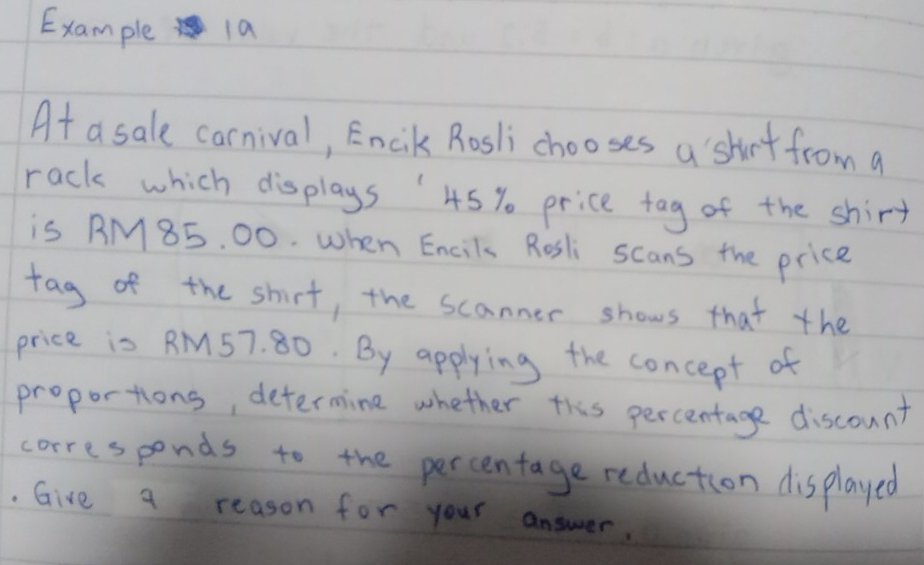 Example 1a
At a sale carnival, Encik Rosli chooses a shirt from a
rack which displays ' 45% price tag of the shirt
is RM85.00. When Encik Rosli scans the price
tag of the shirt, the scanner shows that the
price is RM57.80. By applying the concept of
proportions, determine whether this percentage discount
corresponds to the percentage reduction displayed
. Give a reason for your answer.